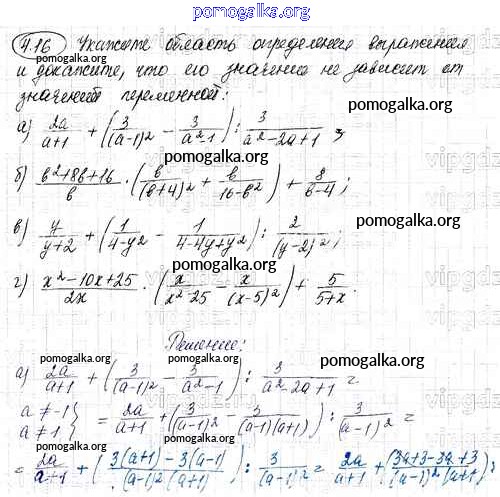 pomogalka.org
4.16 Укажите область определения выражения
и докажите, что его значение не зависит от
значений переменной:
pomogalka.org
а) 2a/(a+1) + (3/(a-1)² - 3/(a²-1)) : 3/(a²-2a+1);
pomogalka.org pomogalka.org
б) (в²+8в+16)/в · (в/(в+4)² + в/(16-в²)) + 8/(в-4);
pomogalka.org
в) y/(y+2) + (1/(4-y²) - 1/(4-4y+y²)) : 2/(y-2)²;
pomogalka.org
г) (x²-10x+25)/2x · (x/(x²-25) - x/(x-5)²) + 5/(5+x).
pomogalka.org
Решение:
pomogalka.org pomogalka.org
а) 2a/(a+1) + (3/(a-1)² - 3/(a²-1)) : 3/(a²-2a+1) =
a ≠ -1
a ≠ 1 } = 2a/(a+1) + (3/(a-1)² - 3/((a-1)(a+1))) : 3/(a-1)² =
pomogalka.org pomogalka.org
= 2a/(a+1) + (3(a+1) - 3(a-1))/((a-1)²(a+1)) : 3/(a-1)² = 2a/(a+1) + (3a+3-3a+3)/((a-1)²(a+1)) :